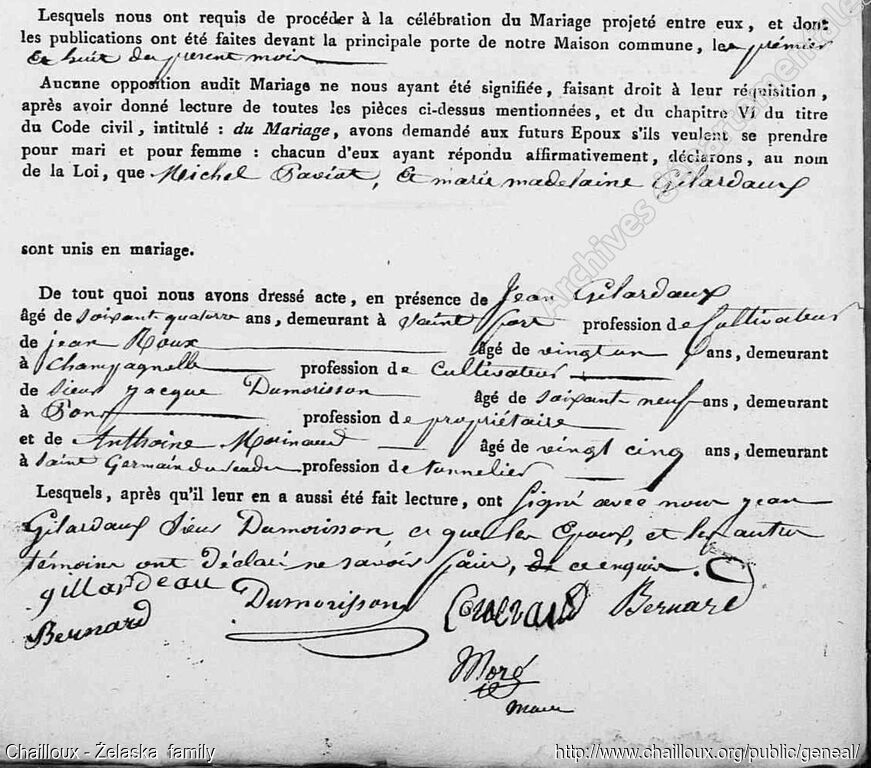 Lesquels nous ont requis de procéder à la célébration du Mariage projeté entre eux, et dont
les publications ont été faites devant la principale porte de notre Maison commune, les prémier
et huit du présent mois
Aucune opposition audit Mariage ne nous ayant été signifiée, faisant droit à leur réquisition,
après avoir donné lecture de toutes les pièces ci-dessus mentionnées, et du chapitre VI du titre
du Code civil, intitulé : du Mariage, avons demandé aux futurs Epoux s'ils veulent se prendre
pour mari et pour femme : chacun d'eux ayant répondu affirmativement, déclarons, au nom
de la Loi, que Michel Paviot, et marie madelaine Gilardaux
sont unis en mariage.
De tout quoi nous avons dressé acte, en présence de Jean Gilardaux
âgé de soixant quatorze ans, demeurant à saint fort profession de Cultivateur
de jean Roux âgé de vingt un ans, demeurant
à Champagnolle profession de Cultivateur
de sieur jacque Dumorisson âgé de soixant neuf ans, demeurant
à Pons profession de propriétaire
et de Anthoine Morinaud âgé de vingt cinq ans, demeurant
à saint Germain du profession de tonnelier
Lesquels, après qu'il leur en a aussi été fait lecture, ont signé avec nous jean
Gilardaux sieur Dumorisson, ce que les Epoux, et les autres
témoins ont déclaré ne savoir faire, de ce enquis.
gillardeau
Bernard Dumorisson Bernard
Moré
maire
Archives départementales
Chailloux - Żelaska family http://www.chailloux.org/public/geneal/